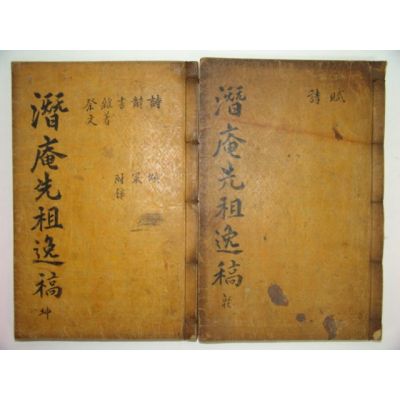 賦
詩
潛庵先祖逸稿 乾
詩
策
書 附錄
雜著
祭文
潛庵先祖逸稿 坤